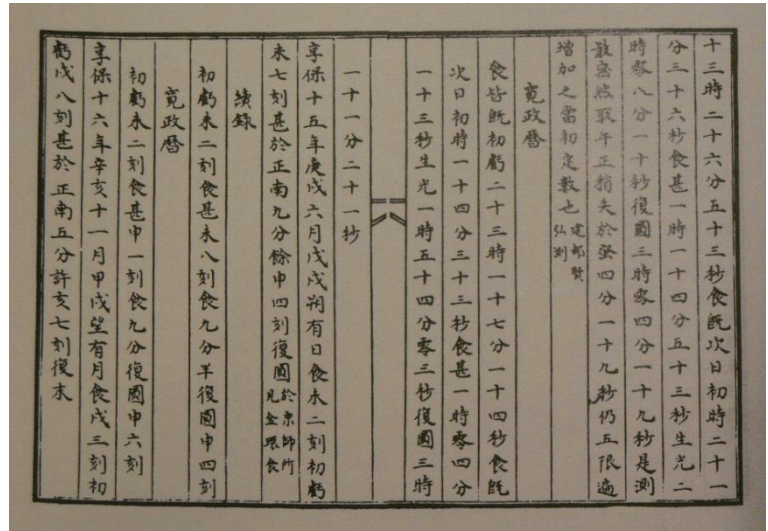 十三時二十六分五十三秒食既次日初時二十一
分三十六秒食甚一時一十四分五十三秒生光二
時零八分一十秒復圓三時零四分一十九秒是測
最密然取午正稍失於發四分一十九秒仍五限遍
増加之當初定數也建部賢弘測
寛政暦
食皆既初虧二十三時一十七分一十四秒食既
次日初時一十四分三十三秒食甚一時零四分
一十三秒生光一時五十四分零三秒復圓三時
一十一分二十一秒
享保十五年庚戌六月戊戌朔有日食未二刻初虧
未七刻甚於正南九分餘申四刻復圓於京師所見全環食
續錄
初虧未二刻食甚未八刻食九分半復圓申四刻
寛政暦
初虧未二刻食甚申一刻食九分復圓申六刻
享保十六年辛亥十一月甲戌望有月食戌三刻初
虧戌八刻甚於正南五分許亥七刻復末